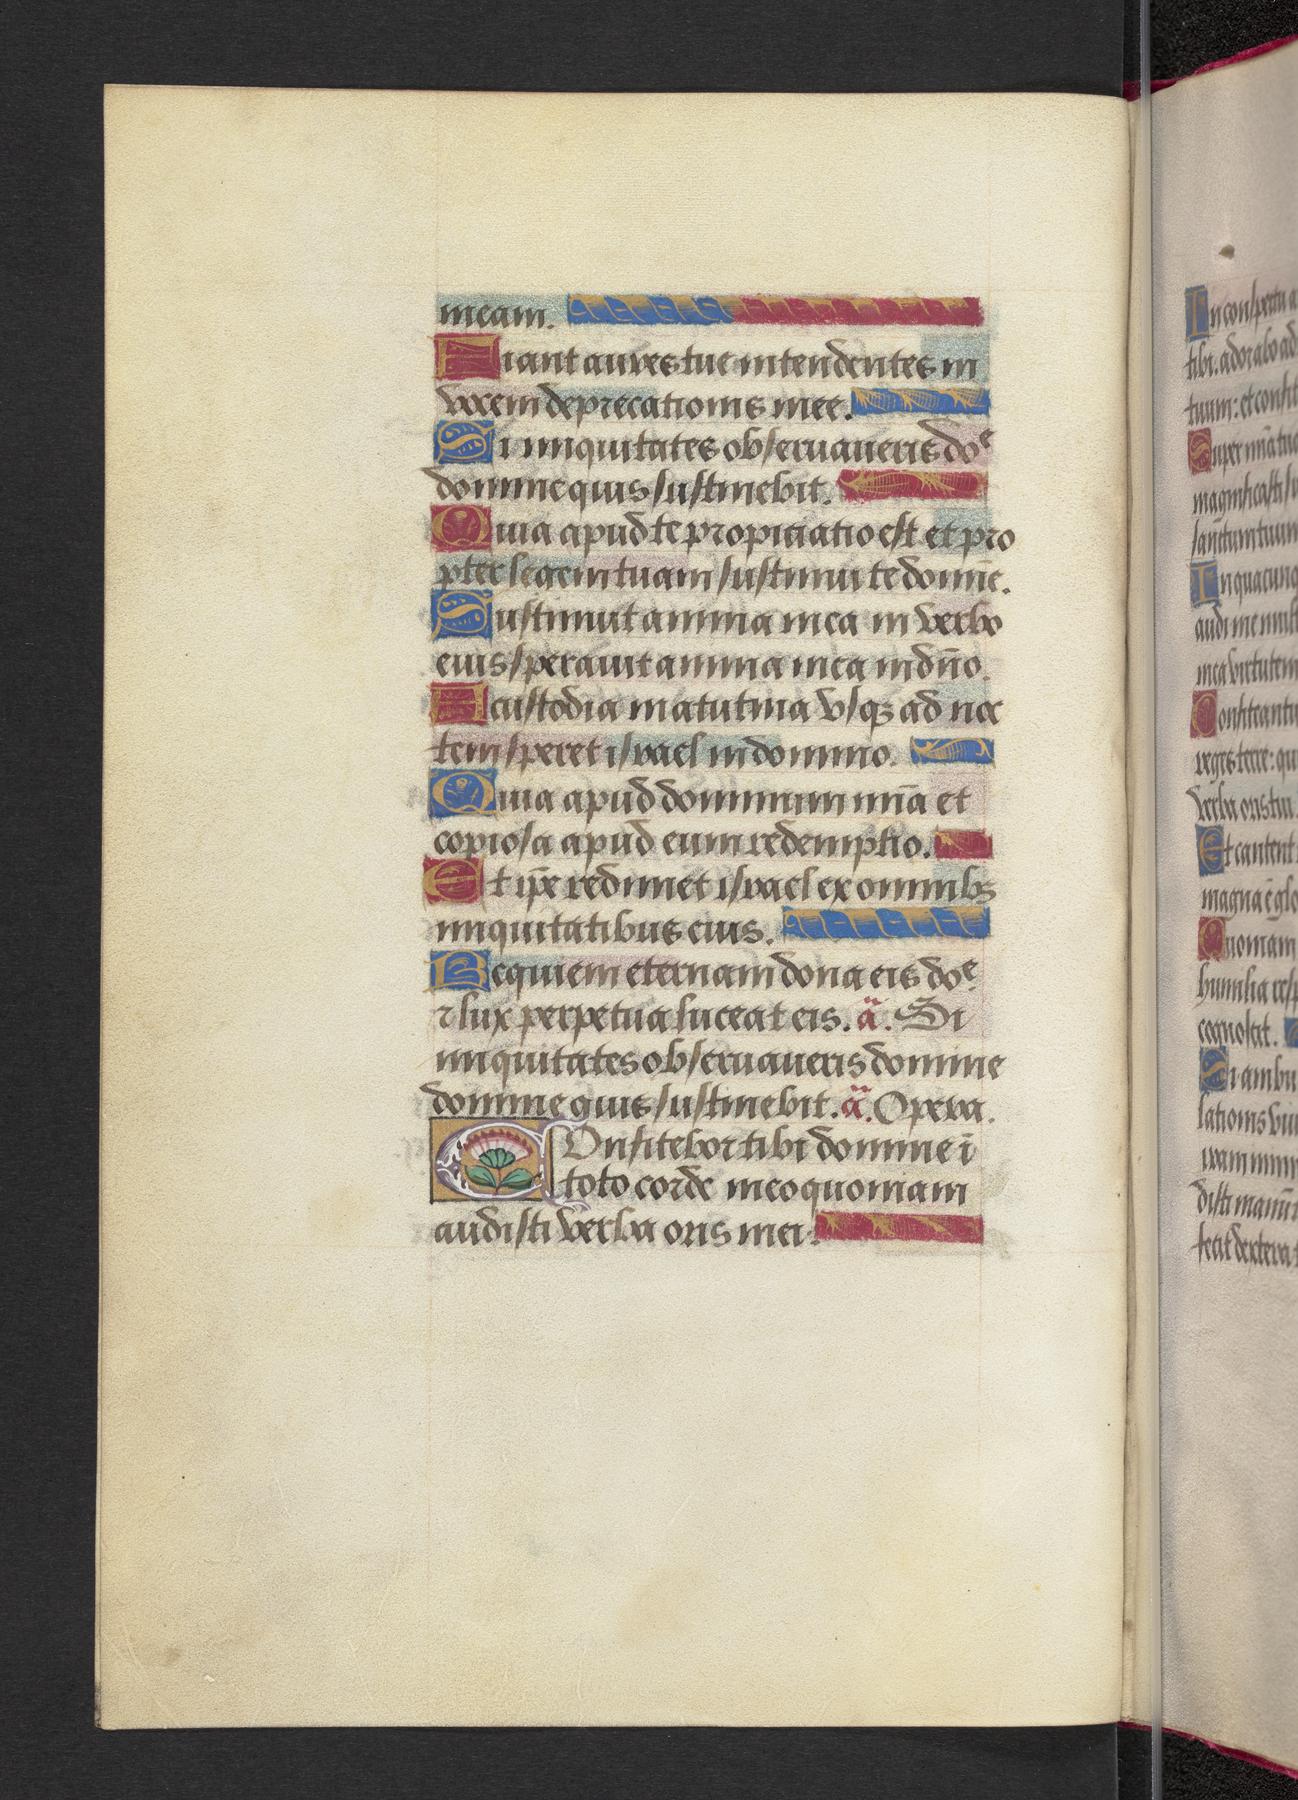 meam.
Fiant aures tue intendentes in
vocem deprecationis mee.
Si iniquitates obseruaueris do^e
domine quis sustinebit.
Quia apud te propiciatio est et pro
pter legem tuam sustinui te domīe.
Sustinuit anima mea in verbo
eius sperauit anima mea in dn̄o.
A custodia matutina vsqꝫ ad noc
tem speret israel in domino.
Quia apud dominum mīa et
copiosa apud eum redemptio.
Et ip̄e redimet israel ex omnibꝫ
iniquitatibus eius.
Requiem eternam dona eis do^e
⁊ lux perpetua luceat eis. ā. Si
iniquitates obseruaueris domine
domine quis sustinebit. ā. Opera.
Confitebor tibi domine ī
toto corde meo quoniam
audisti verba oris mei.
In conspectu a
tibi. adorabo ad
tuum: et confit
Super mīa tua
magnificasti su
sanctum tuum
In quacunq
audi me mult
mea virtutem
Confiteantu
reges terre: qu
verba oris tui.
Et cantent
magna ē glo
Quoniam
humilia resp
cognoscit.
Si ambu
lationis viui
iram inim
disti manū t
fecit dextera t